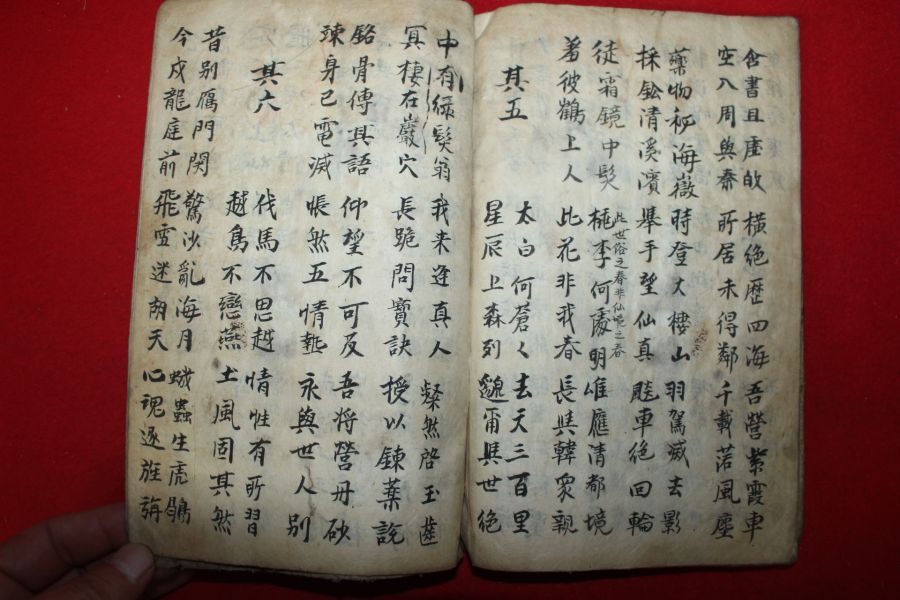 含書且虛故 橫絕歷四海 吾營紫霞車
空入周與秦 所居未得鄰 千載落風塵
藥物秘海嶽 時登大樓山 羽駕滅去影
採鈆清溪濱 擧手望仙真 飈車絕回輪
徒霜鏡中髮 桃李何處明 唯應清都境
此世俗之春非仙境之春
羞彼鶴上人 此花非我春 長與韓衆親
其五
太白何蒼〻 去天三百里
星辰上森列 邈爾與世絕
中有綠髮翁 我来逢真人 粲然啓玉齒
冥棲在巖穴 長跪問寶訣 授以鍊藥說
銘骨傳其語 仰望不可及 吾將營丹砂
竦身已電滅 悵然五情熱 永與世人別
其六
代馬不思越 情性有所習
越鳥不戀燕 土風固其然
昔别鴈門関 驚沙亂海月 蟣蝨生虎鶡
今戍龍庭前 飛雪迷胡天 心魂逐旌旃